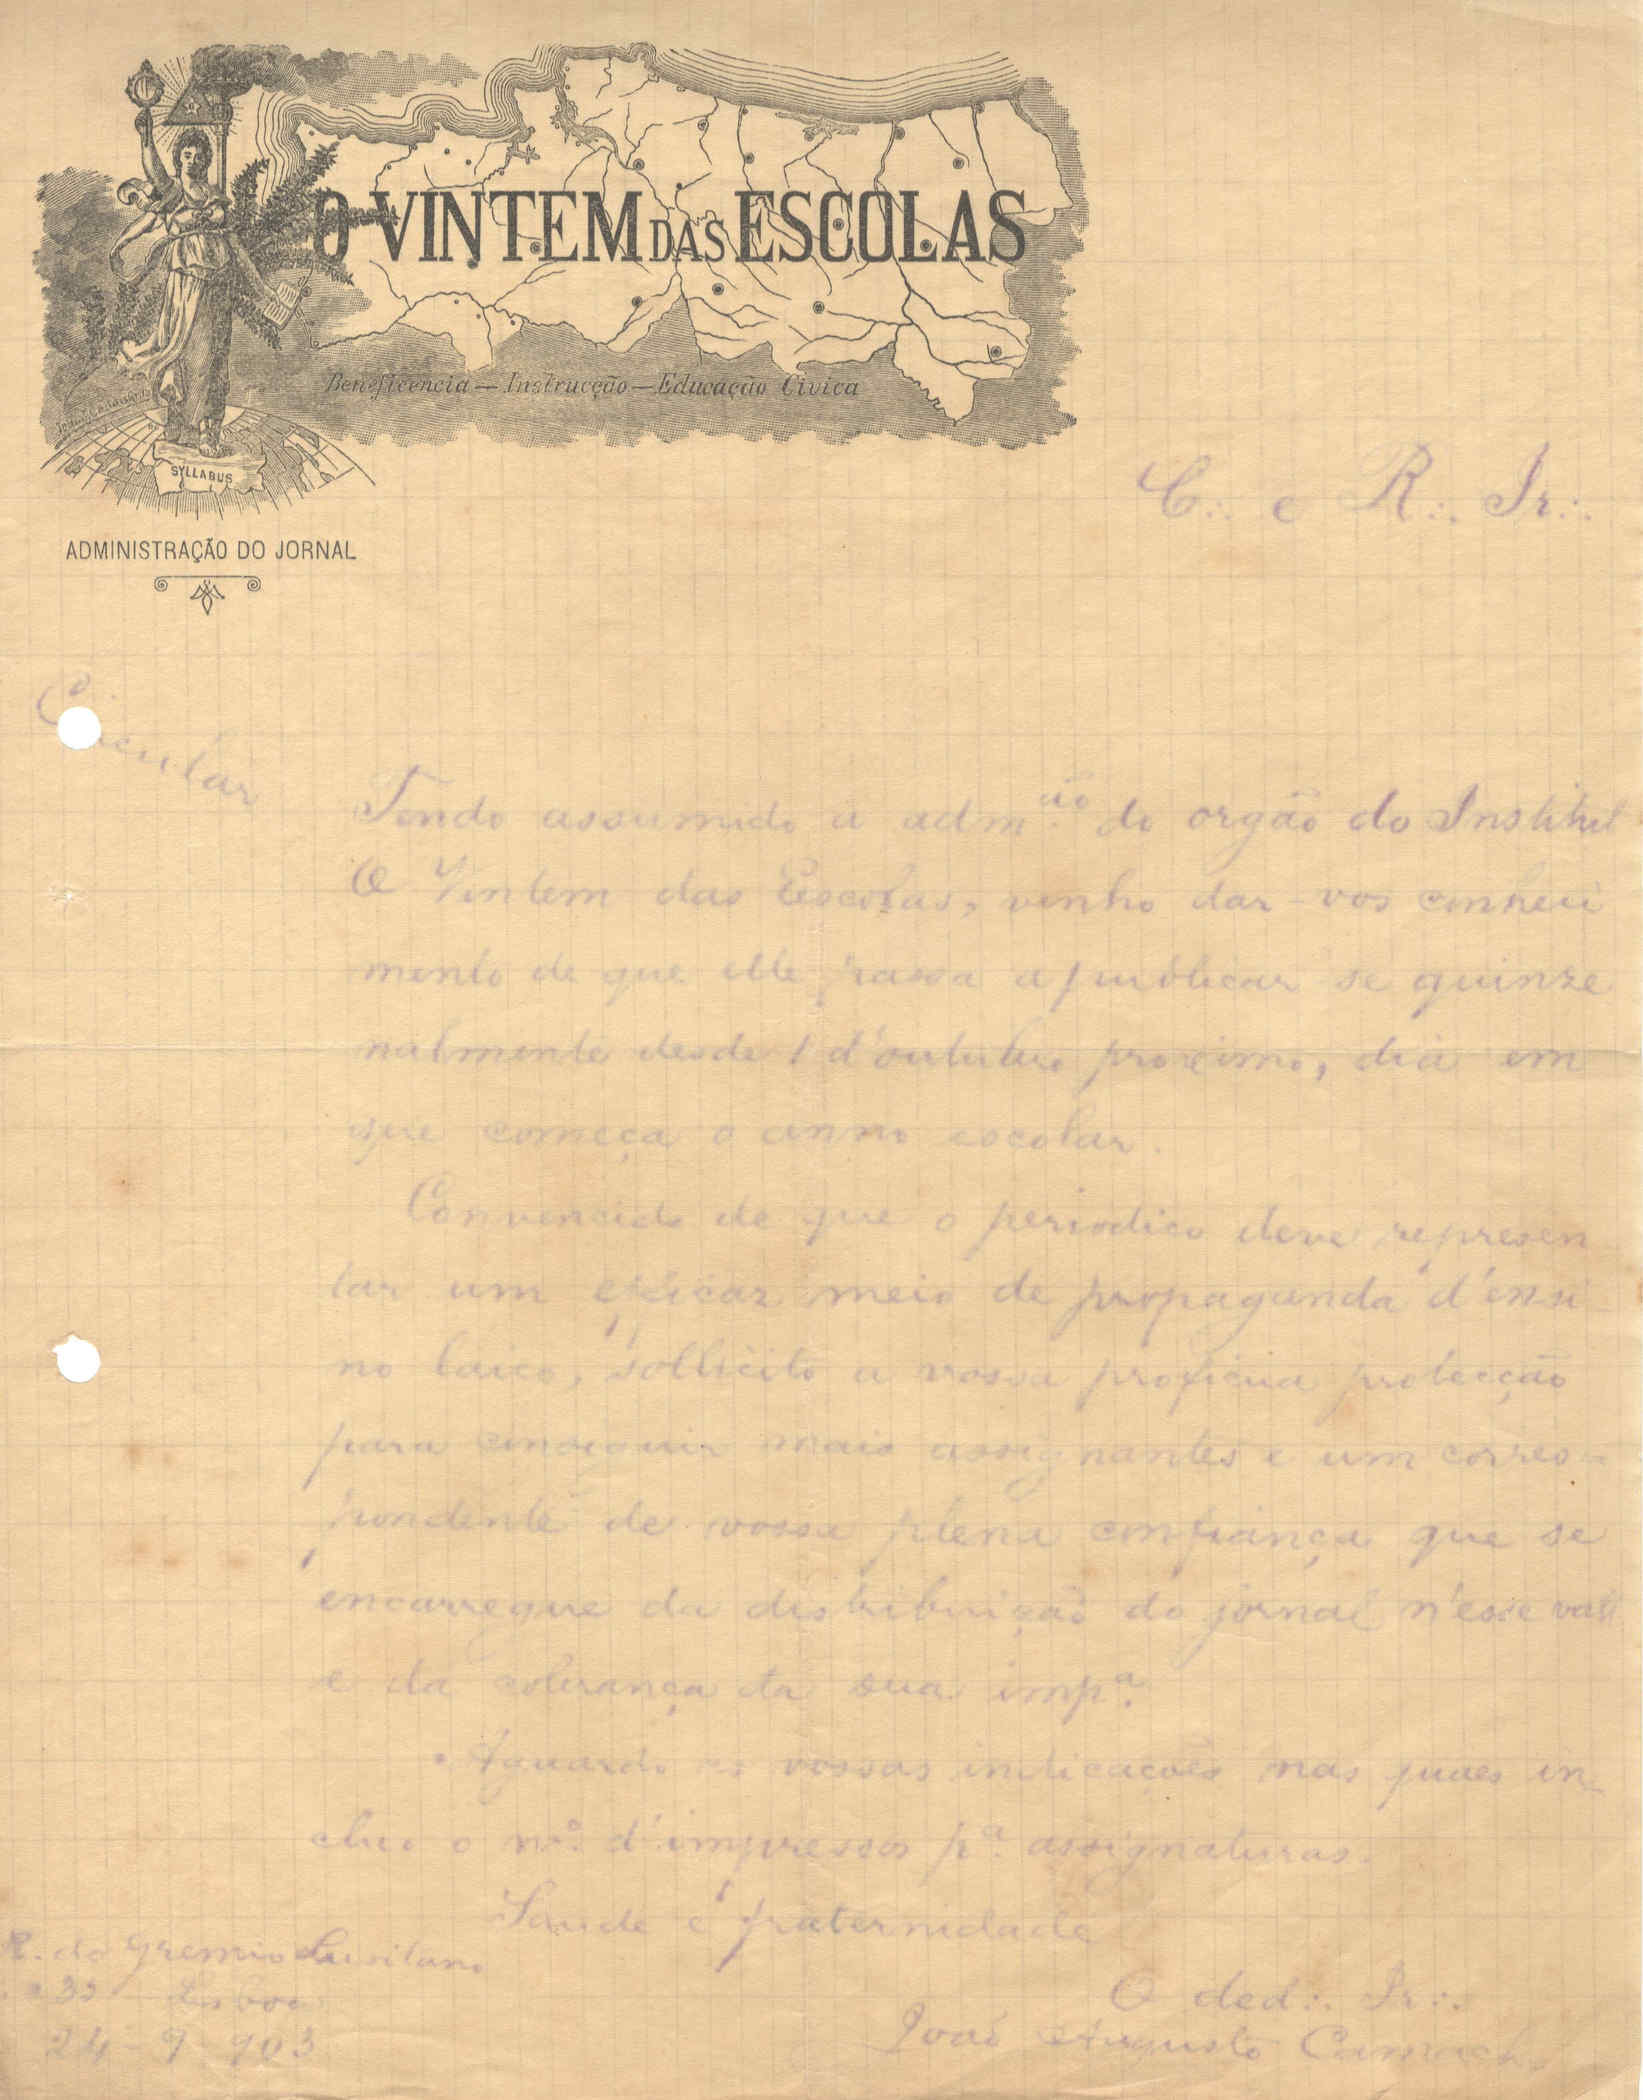 O VINTEM DAS ESCOLAS
Beneficencia — Instrucção — Educação Civica
SYLLABUS
ADMINISTRAÇÃO DO JORNAL
C∴ e R∴ Ir∴
Circular
Tendo assumido a adm.ão do orgão do Institut
O Vintem das Escolas, venho dar-vos conheci
mento de que elle passa a publicar se quinze
nalmente desde 1 d'outubro proximo, dia em
que começa o anno escolar.
Convencido de que o periodico deve represen
tar um eficaz meio de propaganda d'ensi
no laico, sollicito a vossa proficua protecção
para conseguir mais assignantes e um corres-
pondente de vossa plena confiança que se
encarregue da distribuição do jornal n'esse
e da cobrança da sua imp.a
Aguardo as vossas indicações nas quaes in-
cluo o n.o d'impressos p.a assignaturas.
Saude e fraternidade
R. do Gremio Lusitano
35 - Lisboa
24-9-903
O ded∴ Ir∴
João Augusto Camacho